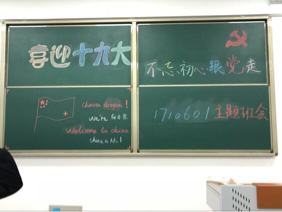 喜迎十九大
不忘初心跟党走
Chinese dragon!
We're G8B.
Welcome to China
China No.1
1710601主题班会